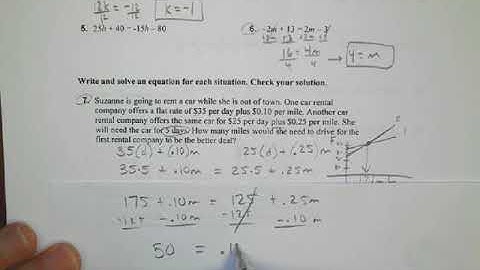 12k = -12
12 12
k = -1
5. 25h + 40 = -15h - 80
6. -2m + 13 = 2m - 3
16 = 4m
4 4
4 = m
Write and solve an equation for each situation. Check your solution.
7. Suzanne is going to rent a car while she is out of town. One car rental
company offers a flat rate of $35 per day plus $0.10 per mile. Another car
rental company offers the same car for $25 per day plus $0.25 per mile. She
will need the car for 5 days. How many miles would she need to drive for the
first rental company to be the better deal?
35(d) + (.10)m 25(d) + (.25)m
35·5 + .10m = 25·5 + .25m
175 + .10m = 125 + .25m
-125 - .10m -125 - .10m
50 = .1